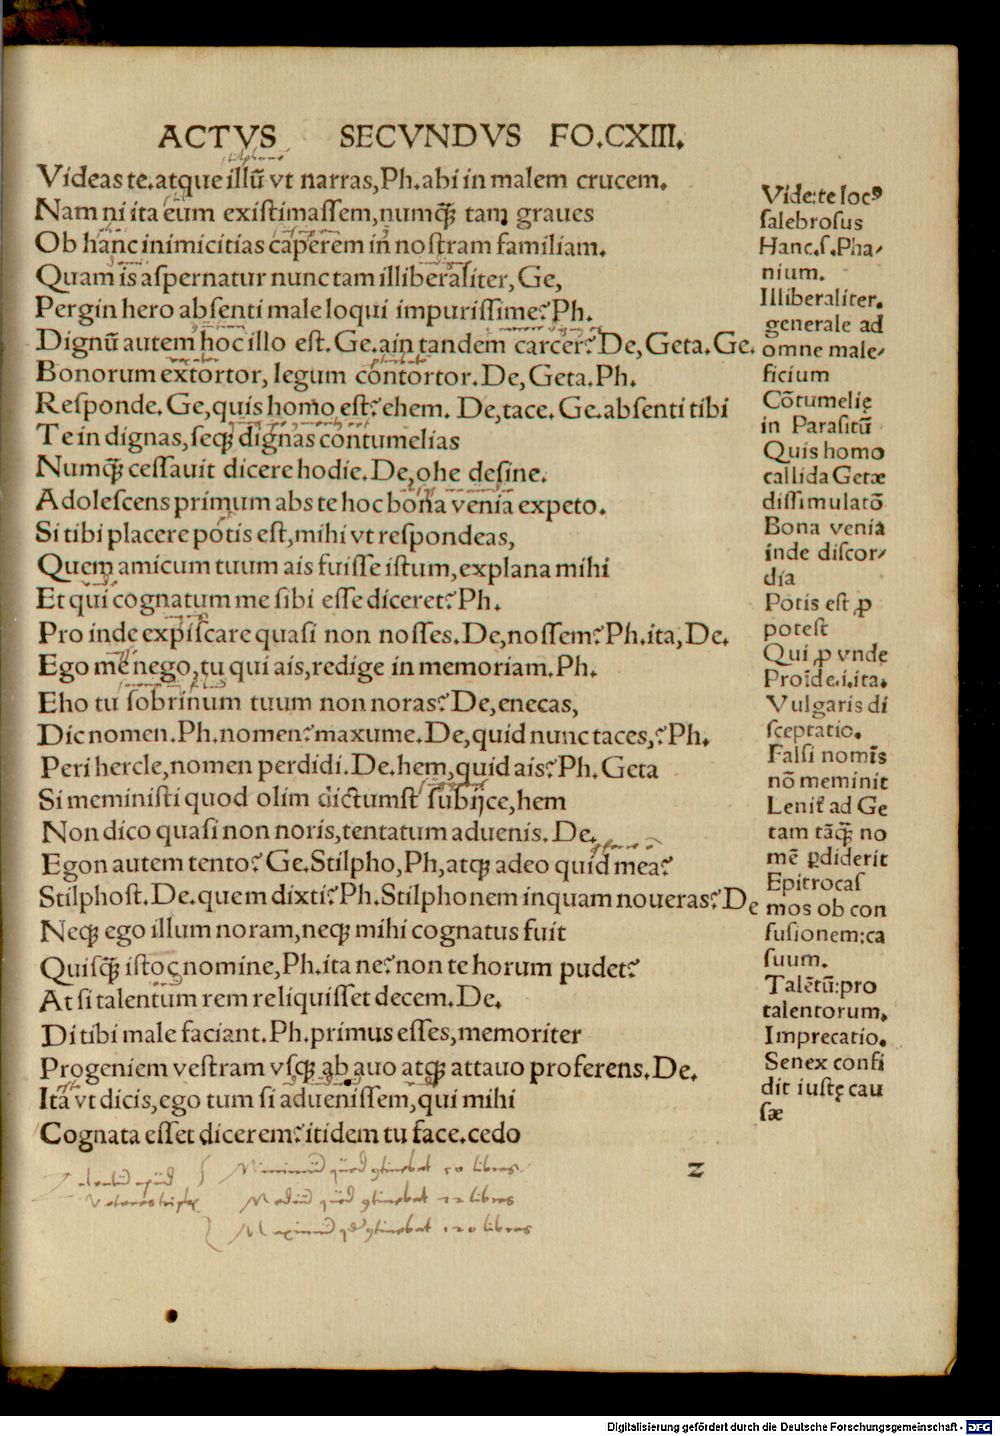 ACTVS SECVNDVS FO.CXIII.
Videas te.atque illũ vt narras,Ph.abi in malem crucem.
Nam ni ita eum existimassem,numq̃ tam graues
Ob hanc inimicitias caperem in nostram familiam.
Quam is aspernatur nunc tam illiberaliter, Ge,
Pergin hero absenti male loqui impurissime? Ph.
Dignũ autem hoc illo est. Ge.ain tandem carcer? De, Geta. Ge.
Bonorum extortor, legum contortor. De, Geta. Ph.
Responde. Ge, quis homo est? ehem. De, tace. Ge. absenti tibi
Te in dignas, seqꝫ dignas contumelias
Numq̃ cessauit dicere hodie. De, ohe desine.
Adolescens primum abs te hoc bona venia expeto.
Si tibi placere potis est, mihi vt respondeas,
Quem amicum tuum ais fuisse istum, explana mihi
Et qui cognatum me sibi esse diceret? Ph.
Pro inde expiscare quasi non nosses. De, nossem? Ph. ita, De.
Ego me nego, tu qui ais, redige in memoriam. Ph.
Eho tu sobrinum tuum non noras? De, enecas,
Dic nomen. Ph. nomen? maxume. De, quid nunc taces,? Ph.
Peri hercle, nomen perdidi. De. hem, quid ais? Ph. Geta
Si meministi quod olim dictumst subijce, hem
Non dico quasi non noris, tentatum aduenis. De.
Egon autem tento? Ge. Stilpho, Ph, atqꝫ adeo quid mea?
Stilphost. De. quem dixti? Ph. Stilphonem inquam noueras? De
Neqꝫ ego illum noram, neqꝫ mihi cognatus fuit
Quisq̃ istoc nomine, Ph. ita ne? non te horum pudet?
At si talentum rem reliquisset decem. De.
Di tibi male faciant. Ph. primus esses, memoriter
Progeniem vestram vsqꝫ ab auo atqꝫ attauo proferens. De.
Ita vt dicis, ego tum si aduenissem, qui mihi
Cognata esset dicerem? itidem tu face. cedo
Vide: te locꝰ
salebrosus
Hanc.s.Pha/
nium.
Illiberaliter.
generale ad
omne male/
ficium
Cõtumelię
in Parasitũ
Quis homo
callida Getæ
dissimulatõ
Bona venia
inde discor/
dia
Potis est ꝓ
potest
Qui ꝓ vnde
Proĩde.i.ita.
Vulgaris di
sceptatio.
Falsi nomĩs
nõ meminit
Lenit̃ ad Ge
tam tãq̃ no
mẽ ꝑdiderit
Epitrocas
mos ob con
fusionem: ca
suum.
Talẽtũ: pro
talentorum,
Imprecatio.
Senex confi
dit iustę cau
sæ
z
Talentũ apud Minimũ quod 9tinebat 50 libras
Veteres triplex Mediũ quod 9tinebat 72 libras
Maximũ qd 9tinebat 120 libras
Digitalisierung gefördert durch die Deutsche Forschungsgemeinschaft - DFG